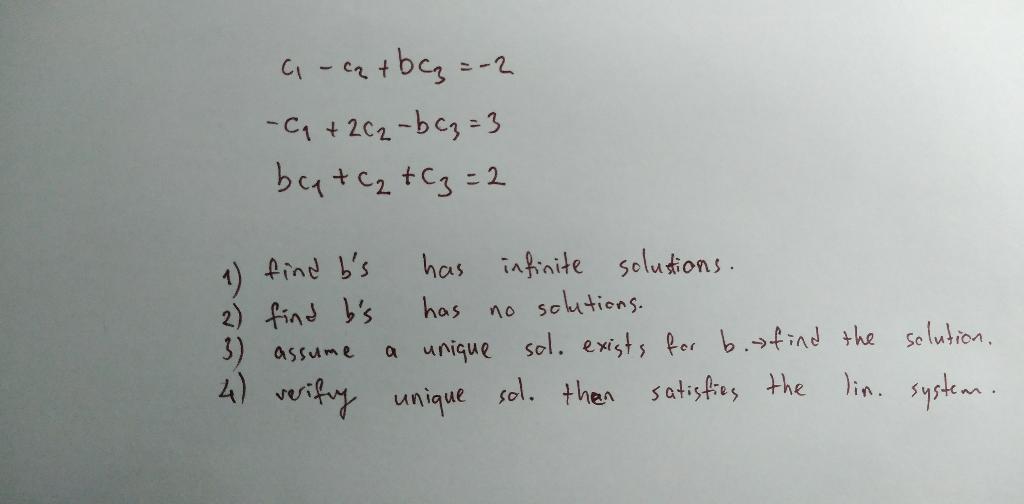 c₁ - c₂ + bc₃ = -2
-c₁ + 2c₂ - bc₃ = 3
bc₁ + c₂ + c₃ = 2
1) find b's has infinite solutions.
2) find b's has no solutions.
3) assume a unique sol. exists for b. → find the solution.
4) verifvy unique sol. then satisfies the lin. system.